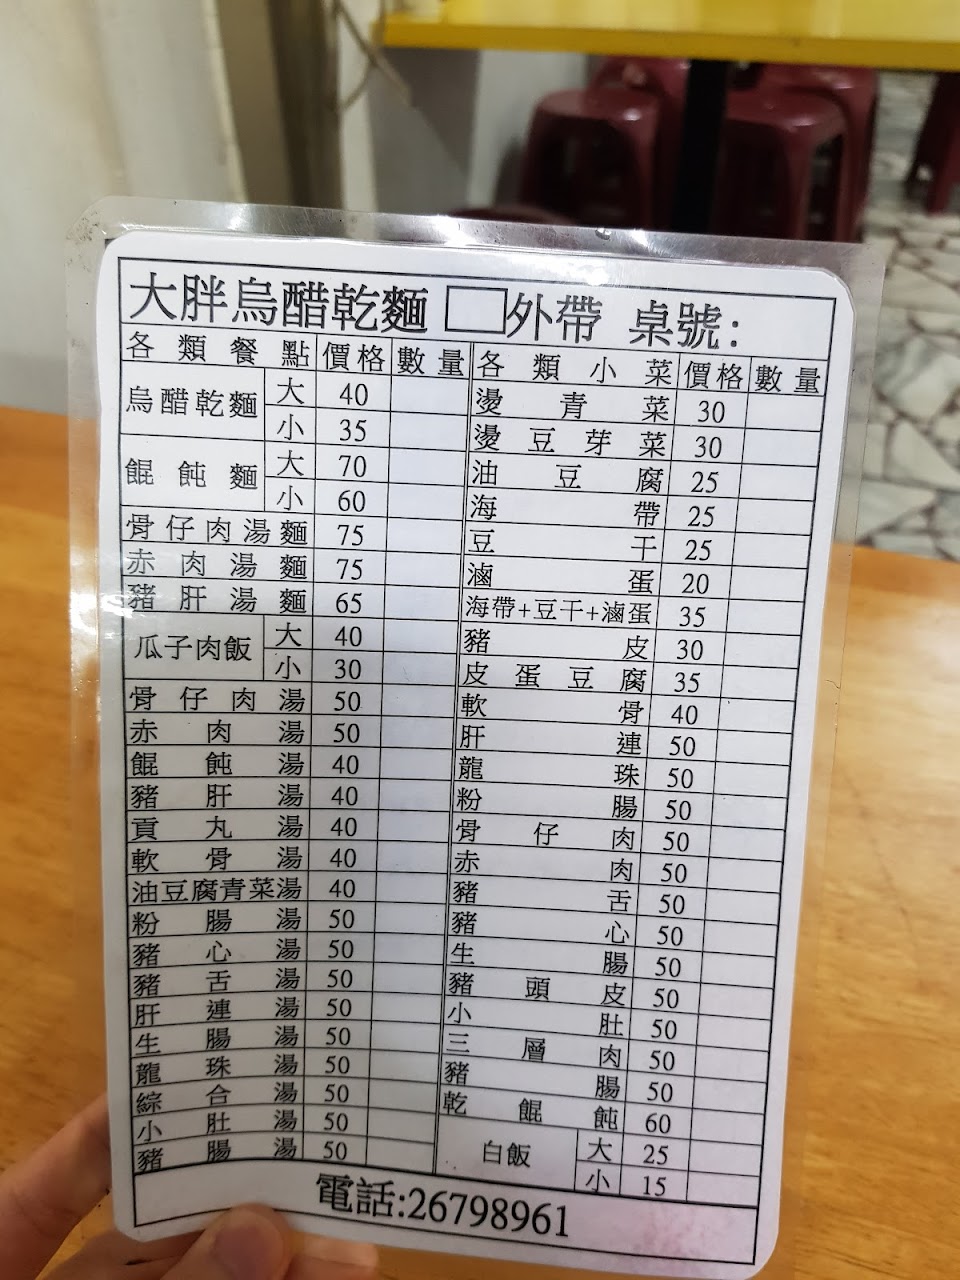 大胖烏醋乾麵 外帶 桌號:
各類餐點 價格 數量 各類小菜 價格 數量
烏醋乾麵 大 40 燙青菜 30
小 35 燙豆芽菜 30
餛飩麵 大 70 油豆腐 25
小 60 海帶 25
骨仔肉湯麵 75 豆干 25
赤肉湯麵 75 滷蛋 20
豬肝湯麵 65 海帶+豆干+滷蛋 35
瓜子肉飯 大 40 豬皮 30
小 30 皮蛋豆腐 35
骨仔肉湯 50 軟骨 40
赤肉湯 50 肝連 50
餛飩湯 40 龍珠 50
豬肝湯 40 粉腸 50
貢丸湯 40 骨仔肉 50
軟骨湯 40 赤肉 50
油豆腐青菜湯 40 豬舌 50
粉腸湯 50 豬心 50
豬心湯 50 生腸 50
豬舌湯 50 豬頭皮 50
肝連湯 50 小肚 50
生腸湯 50 三層肉 50
龍珠湯 50 豬腸 50
綜合湯 50 乾餛飩 60
小肚湯 50 白飯 大 25
豬腸湯 50 小 15
電話:26798961